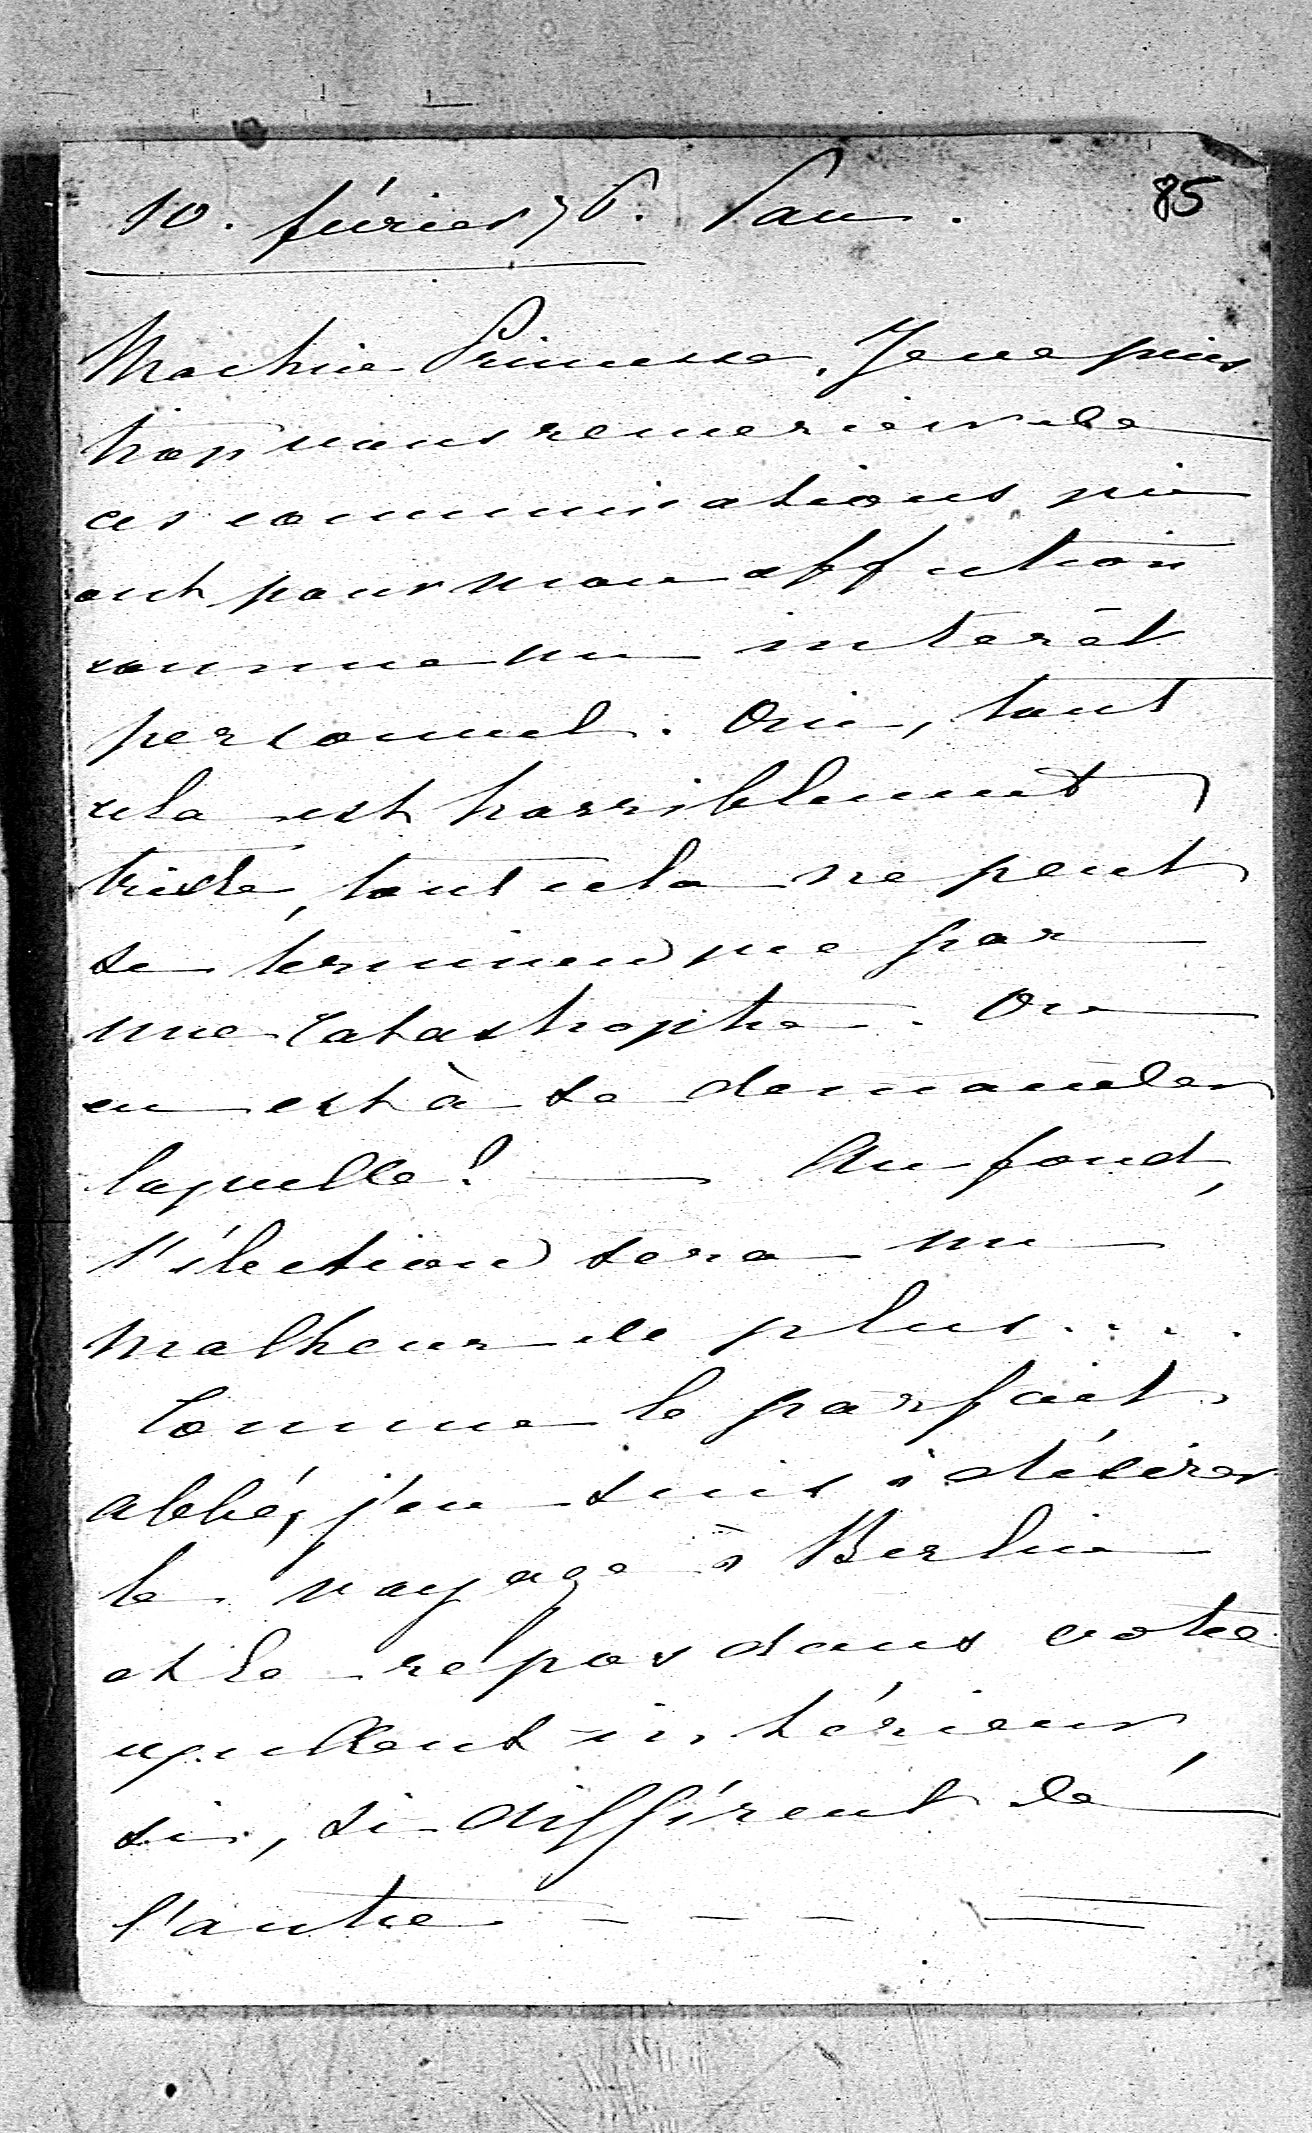 10. février 76. Pau. 85
Ma chère Princesse. Je ne puis
trop vous remercier de
ces communications qui
ont pour mon affection
comme un intérêt
personnel. Oui, tout
cela est horriblement
triste, tout cela ne peut
se terminer que par
une catastrophe. On
en est à se demander
laquelle? — Au fond,
l'élection sera un
malheur de plus....
Comme le parfait
abbé, j'en suis à désirer
le voyage à Berlin
et le repos dans votre
excellent intérieur,
si, si différent de
l'autre - - - -